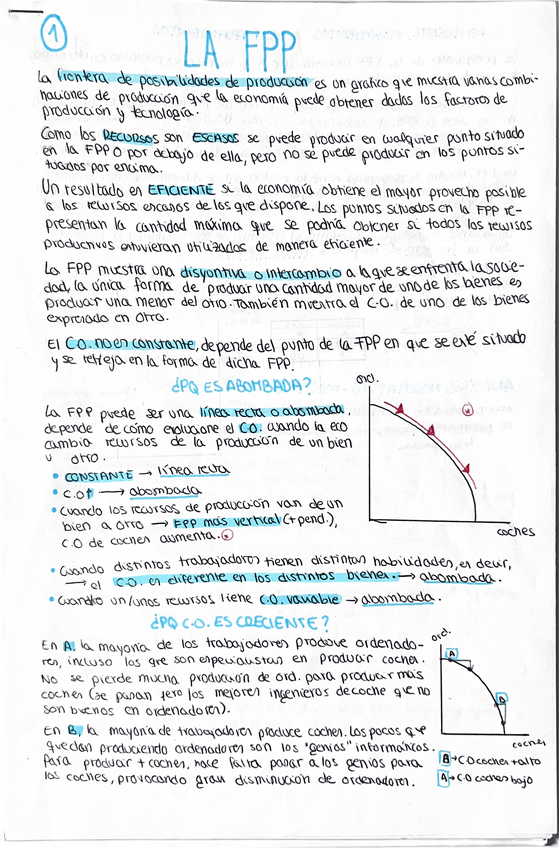 1
LA FPP
La frontera de posibilidades de producción es un gráfico que muestra varias combi-
naciones de producción que la economía puede obtener dados los factores de
producción y tecnología.
Como los RECURSOS son ESCASOS se puede producir en cualquier punto situado
en la FPP o por debajo de ella, pero no se puede producir en los puntos si-
tuados por encima.
Un resultado en EFICIENTE si la economía obtiene el mayor provecho posible
a los recursos escasos de los que dispone. Los puntos situados en la FPP re-
presentan la cantidad máxima que se podría obtener si todos los recursos
productivos estuvieran utilizados de manera eficiente.
La FPP muestra una disyontiva o intercambio a la que se enfrenta la socie-
dad, la única forma de producir una cantidad mayor de uno de los bienes es
producir una menor del otro. También muestra el C.O. de uno de los bienes
expresado en otro.
El C.O. no es constante, depende del punto de la FPP en que se esté situado
y se refleja en la forma de dicha FPP.
¿PQ ES ABOMBADA?
ord.
La FPP puede ser una línea recta o abombada,
depende de cómo evolucione el C.O. cuando la eco
cambia recursos de la producción de un bien
u otro.
• CONSTANTE → línea recta
• C.O↑ → abombada
• Cuando los recursos de producción van de un
bien a otro → FPP más vertical (+pend.),
C.O de coches aumenta. *
*
coches
• Cuando distintos trabajadores tienen distintas habilidades, es decir,
→ el C.O. es diferente en los distintos bienes. → abombada.
• Cuando un/unos recursos tiene C.O. variable → abombada.
¿PQ C.O. ES CRECIENTE?
En A, la mayoría de los trabajadores produce ordenado-
res, incluso los que son especialistas en producir coches.
No se pierde mucha producción de ord. para producir más
coches (se pasan 1ero los mejores ingenieros de coche que no
son buenos en ordenadores).
En B, la mayoría de trabajadores produce coches. Los pocos que
quedan produciendo ordenadores son los "genios" informáticos.
Para producir + coches, hace falta pasar a los genios para
los coches, provocando gran disminución de ordenadores.
ord.
A
B
coches
B → C.O coches + alto
A → C.O coches bajo